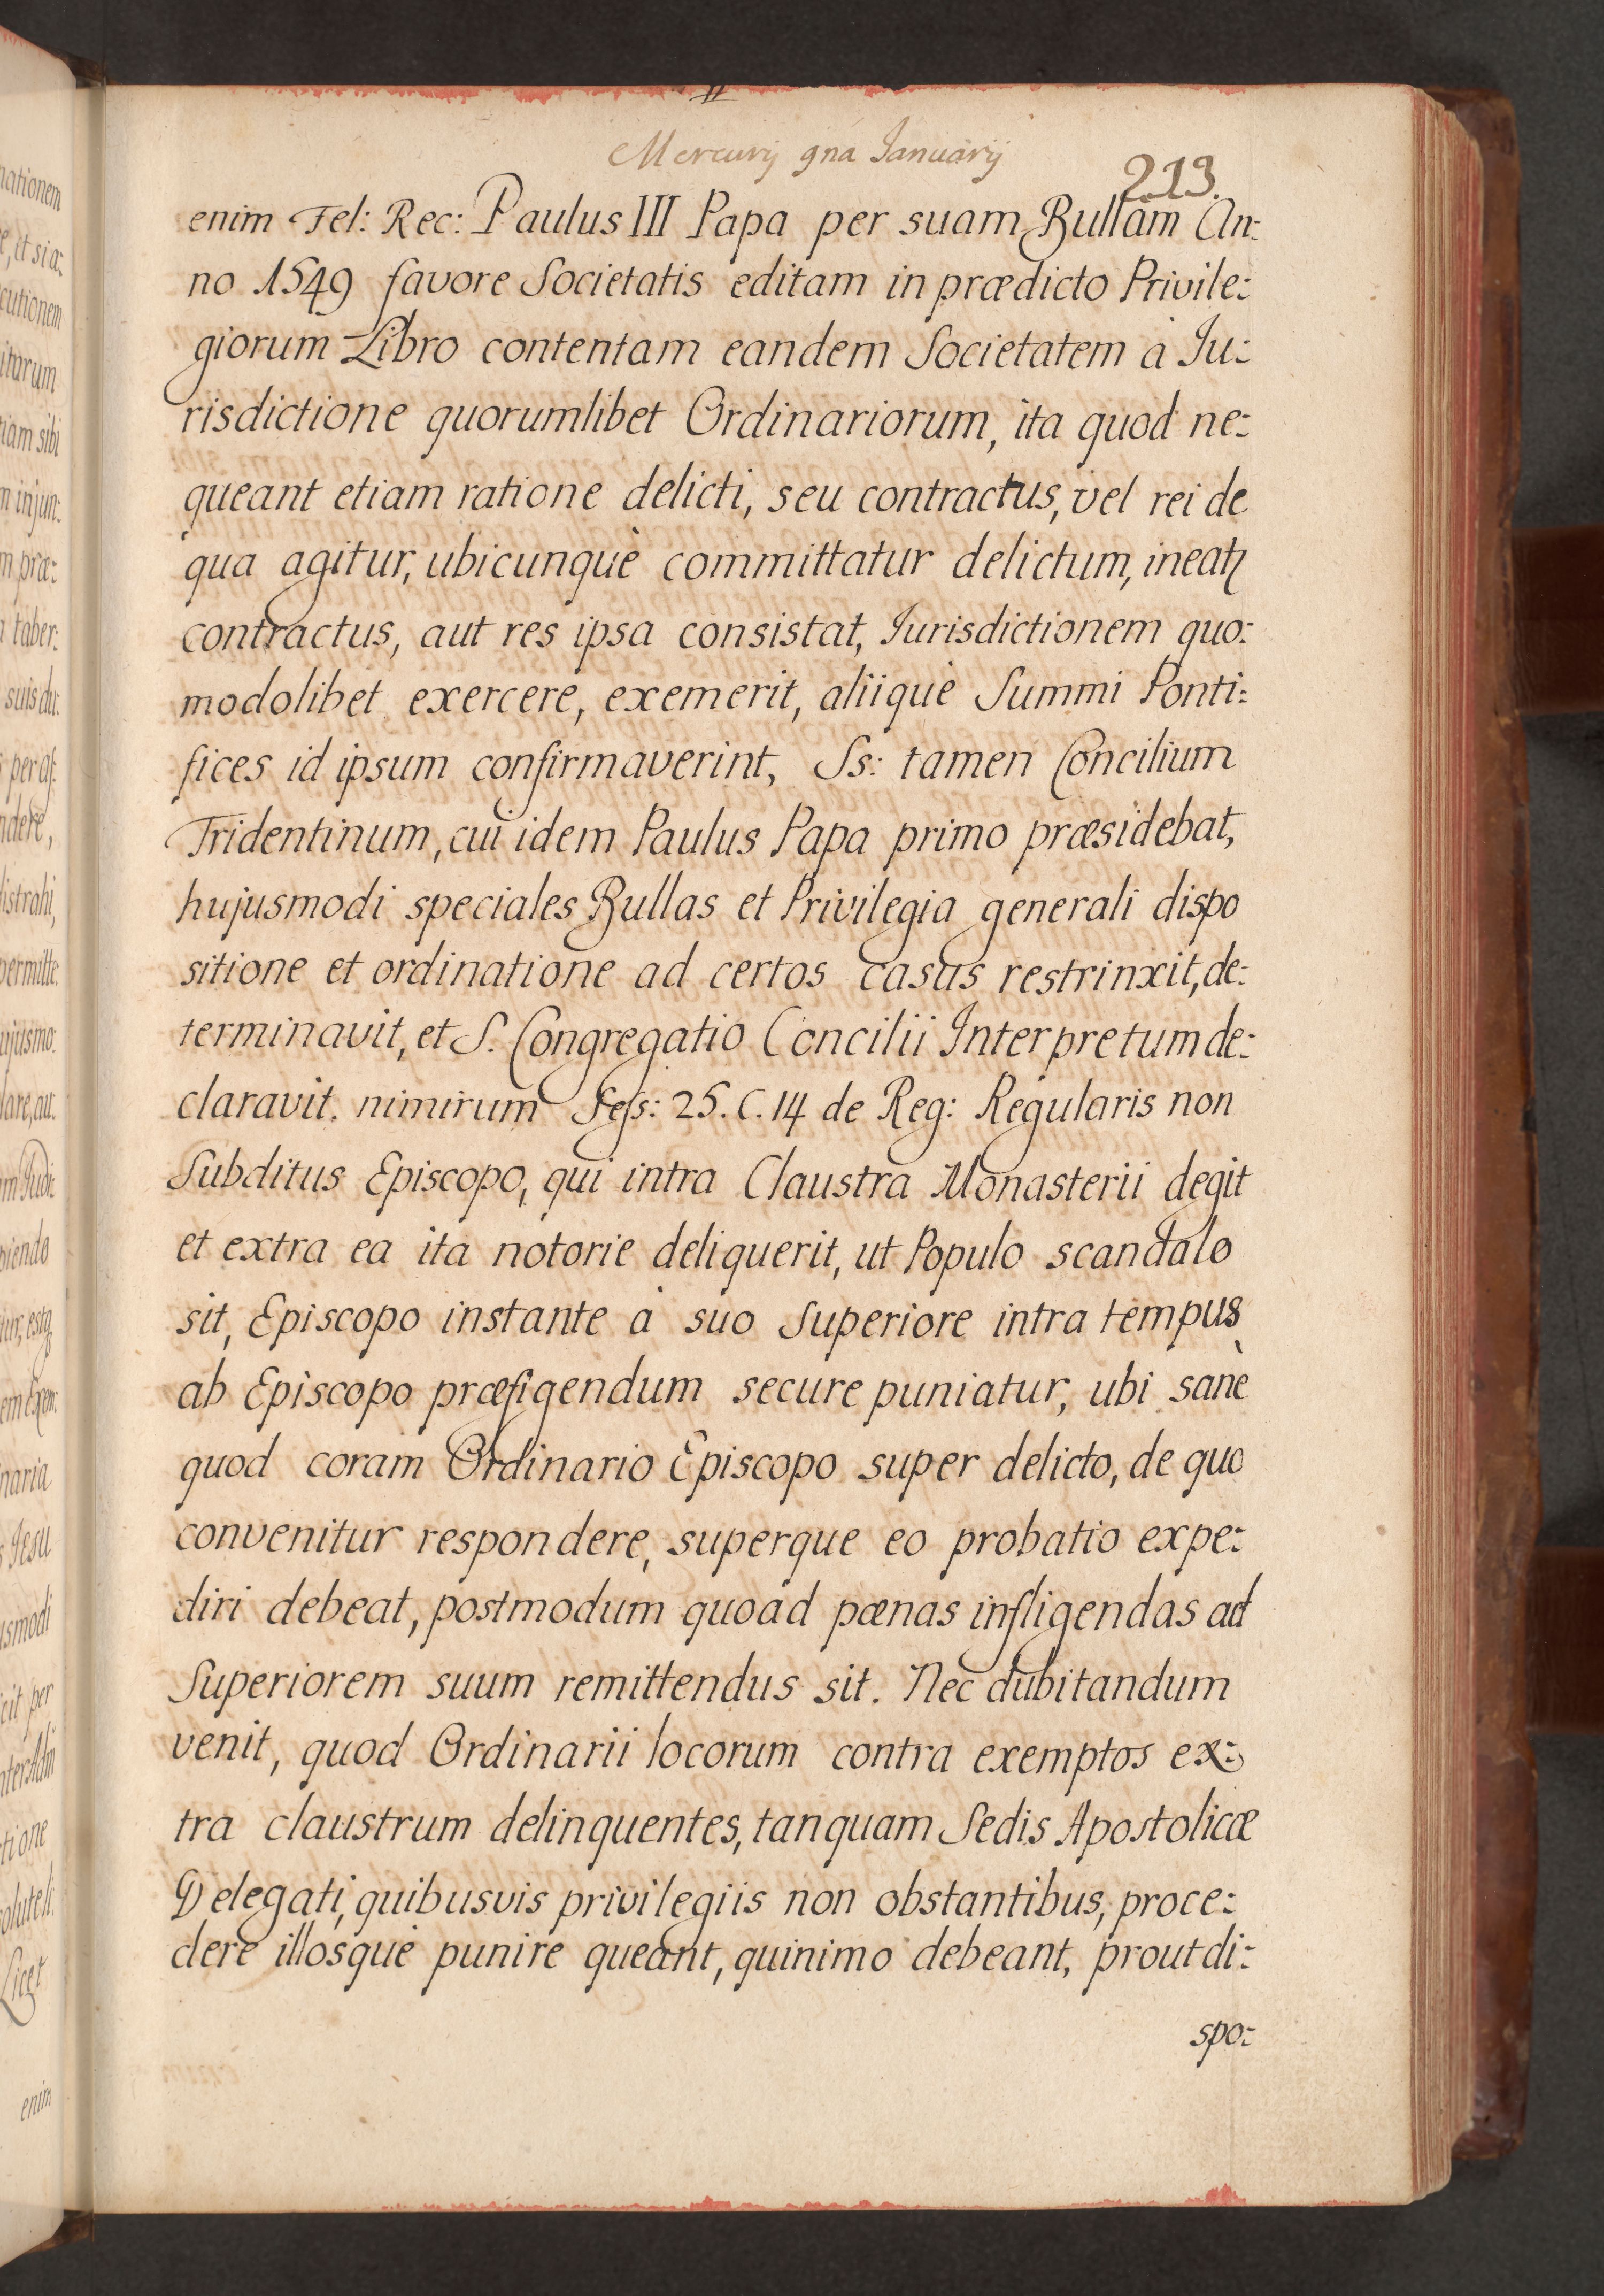 Mercurij 9na Januarij
213.
enim Fel: Rec: Paulus III Papa per suam Bullam An:
no 1549 favore Societatis editam in prædicto Privile:
giorum Libro contentam eandem Societatem à Ju:
risdictione quorumlibet Ordinariorum, ita quod ne:
queant etiam ratione delicti, seu contractus, vel rei de
qua agitur, ubicunquè committatur delictum, ineatꝛ
contractus, aut res ipsa consistat, Jurisdictionem quo:
modolibet exercere, exemerit, aliiquè Summi Ponti:
fices id ipsum confirmaverint, Ss: tamen Concilium
Tridentinum, cui idem Paulus Papa primo præsidebat,
hujusmodi speciales Bullas et Privilegia generali dispo
sitione et ordinatione ad certos casus restrinxit, de:
terminavit, et S. Congregatio Concilii Interpretum de:
claravit. nimirum Seſs: 25. C. 14 de Reg: Regularis non
Subditus Episcopo, qui intra Claustra Monasterii degit
et extra ea ita notorie deliquerit, ut Populo scandalo
sit, Episcopo instante à suo Superiore intra tempus
ab Episcopo præfigendum secure puniatur, ubi sanè
quod coram Ordinario Episcopo super delicto, de quo
convenitur respondere, superque eo probatio expe:
diri debeat, postmodum quoad pœnas infligendas ad
Superiorem suum remittendus sit. Nec dubitandum
venit, quod Ordinarii locorum contra exemptos ex:
tra claustrum delinquentes, tanquam Sedis Apostolicæ
Delegati, quibusvis privilegiis non obstantibus, proce:
dere illosquè punire queant, quinimo debeant, prout di:
spo: